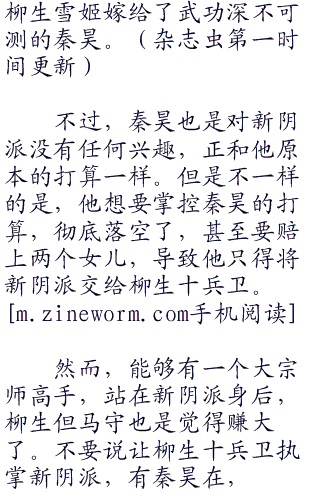 柳生雪姬嫁给了武功深不可
测的秦昊。（杂志虫第一时
间更新）
不过，秦昊也是对新阴
派没有任何兴趣，正和他原
本的打算一样。但是不一样
的是，他想要掌控秦昊的打
算，彻底落空了，甚至要赔
上两个女儿，导致他只得将
新阴派交给柳生十兵卫。
[m.zineworm.com手机阅读]
然而，能够有一个大宗
师高手，站在新阴派身后，
柳生但马守也是觉得赚大
了。不要说让柳生十兵卫执
掌新阴派，有秦昊在，